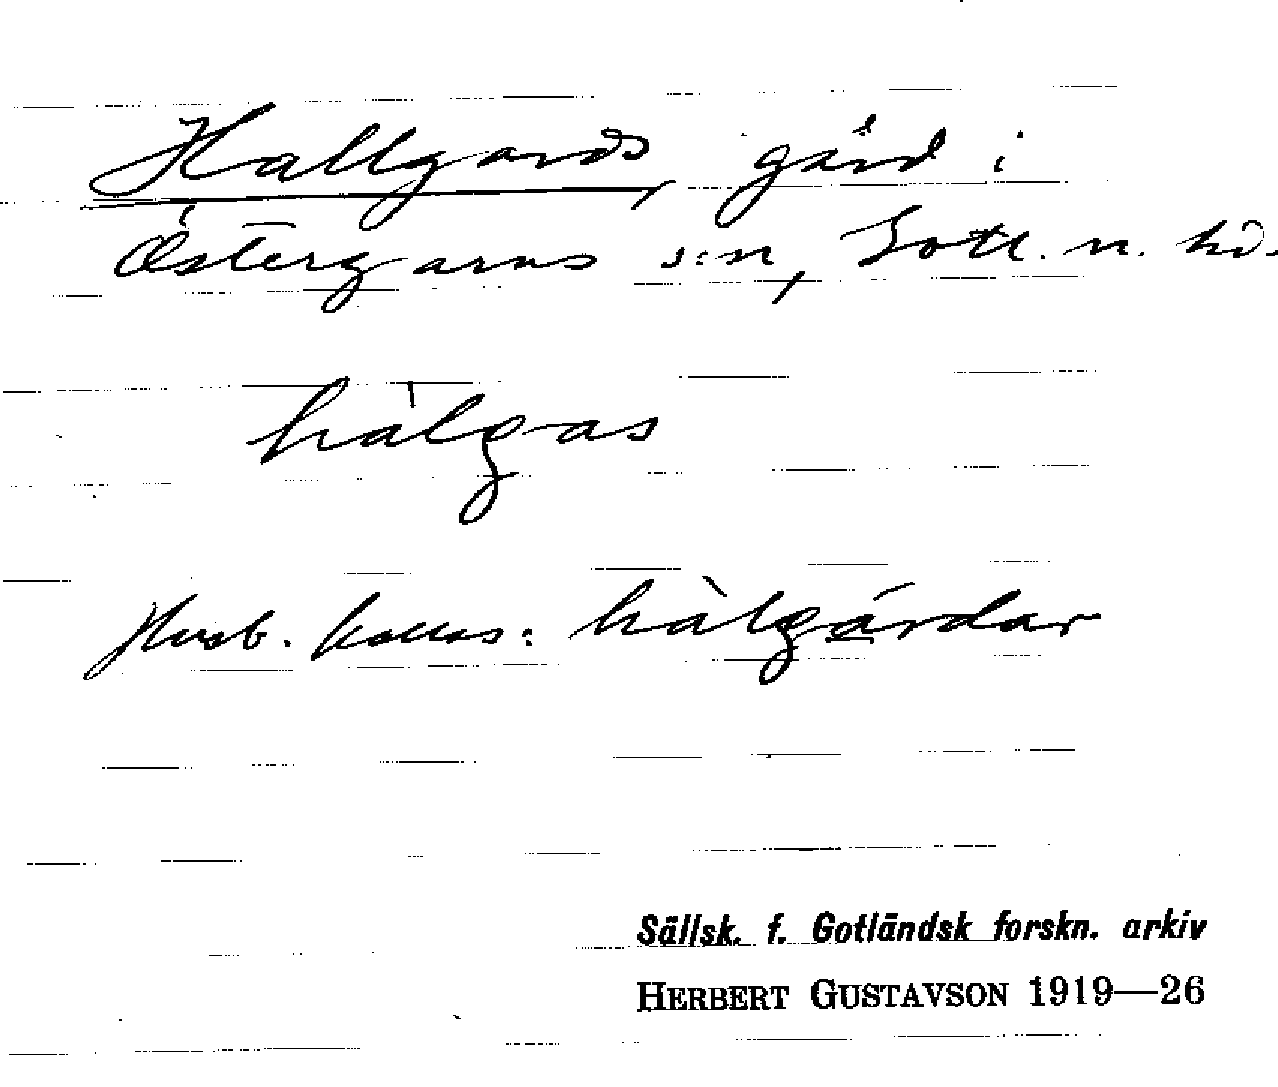 Hallgards, gård i
Östergarns s:n, Gotl. n. hd.
hàlgas
Husb. kallas: hàlgárdar
Sällsk. f. Gotländsk forskn. arkiv
HERBERT GUSTAVSON 1919—26